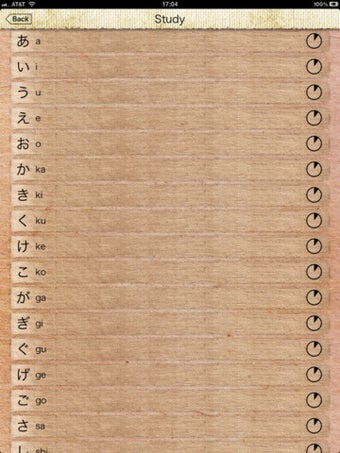 AT&T 17:04 100%
Back Study
あ a
い i
う u
え e
お o
か ka
き ki
く ku
け ke
こ ko
が ga
ぎ gi
ぐ gu
げ ge
ご go
さ sa
し shi